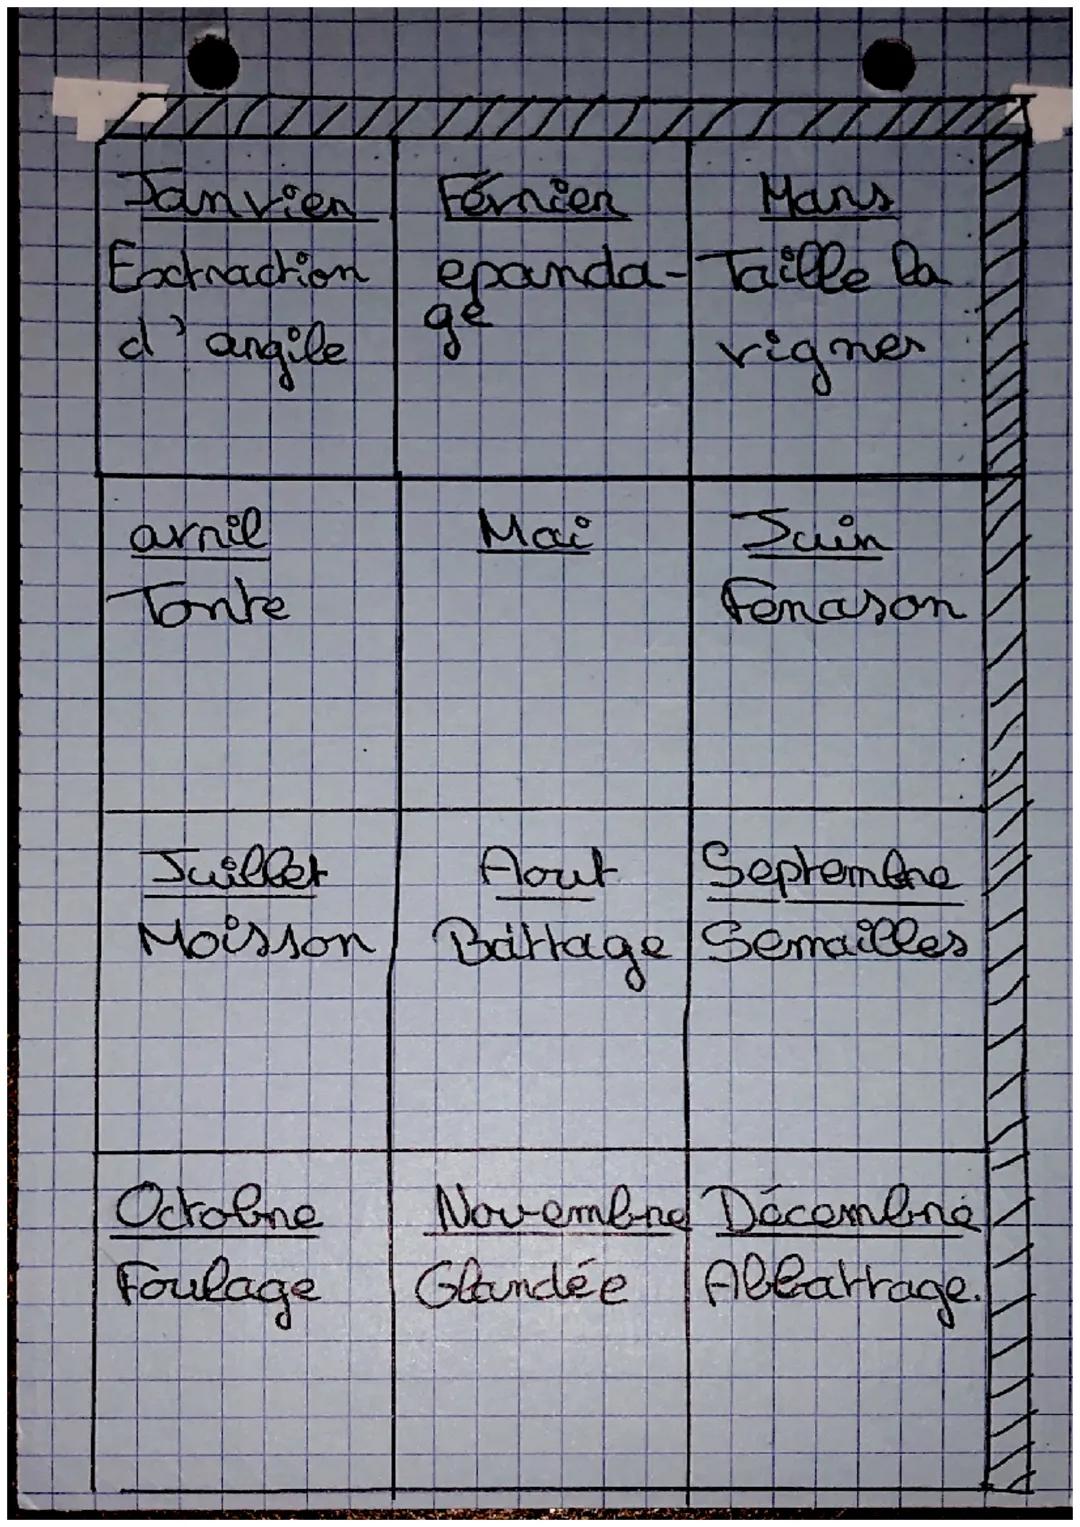 Janvier
Extraction
d'argile
Février
epanda-
ge
Mars
Taille la
vigner
avril
Tonte
Mai
Juin
Fenason
Juillet
Moisson
Aout
Battage
Septembre
Semailles
Octobre
Foulage
Novembre
Glandée
Décembre
Abbattage.